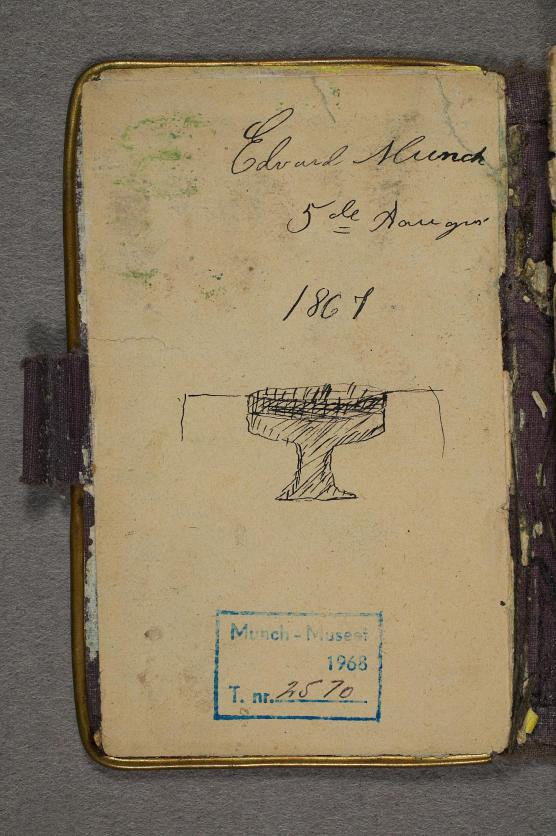 Edvard Munch
5 de
1867
Munch - Museet
1968
T. nr. 2570